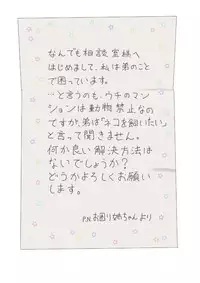 なんでも相談室様へ
はじめまして、私は弟のこと
で困っています。
…と言うのも、ウチのマン
ションは動物禁止なの
ですが、弟は「ネコを飼いたい」
と言って聞きません。
何か良い解決方法は
ないでしょうか？
どうかよろしくお願い
します。
P.N お困り姉ちゃんより